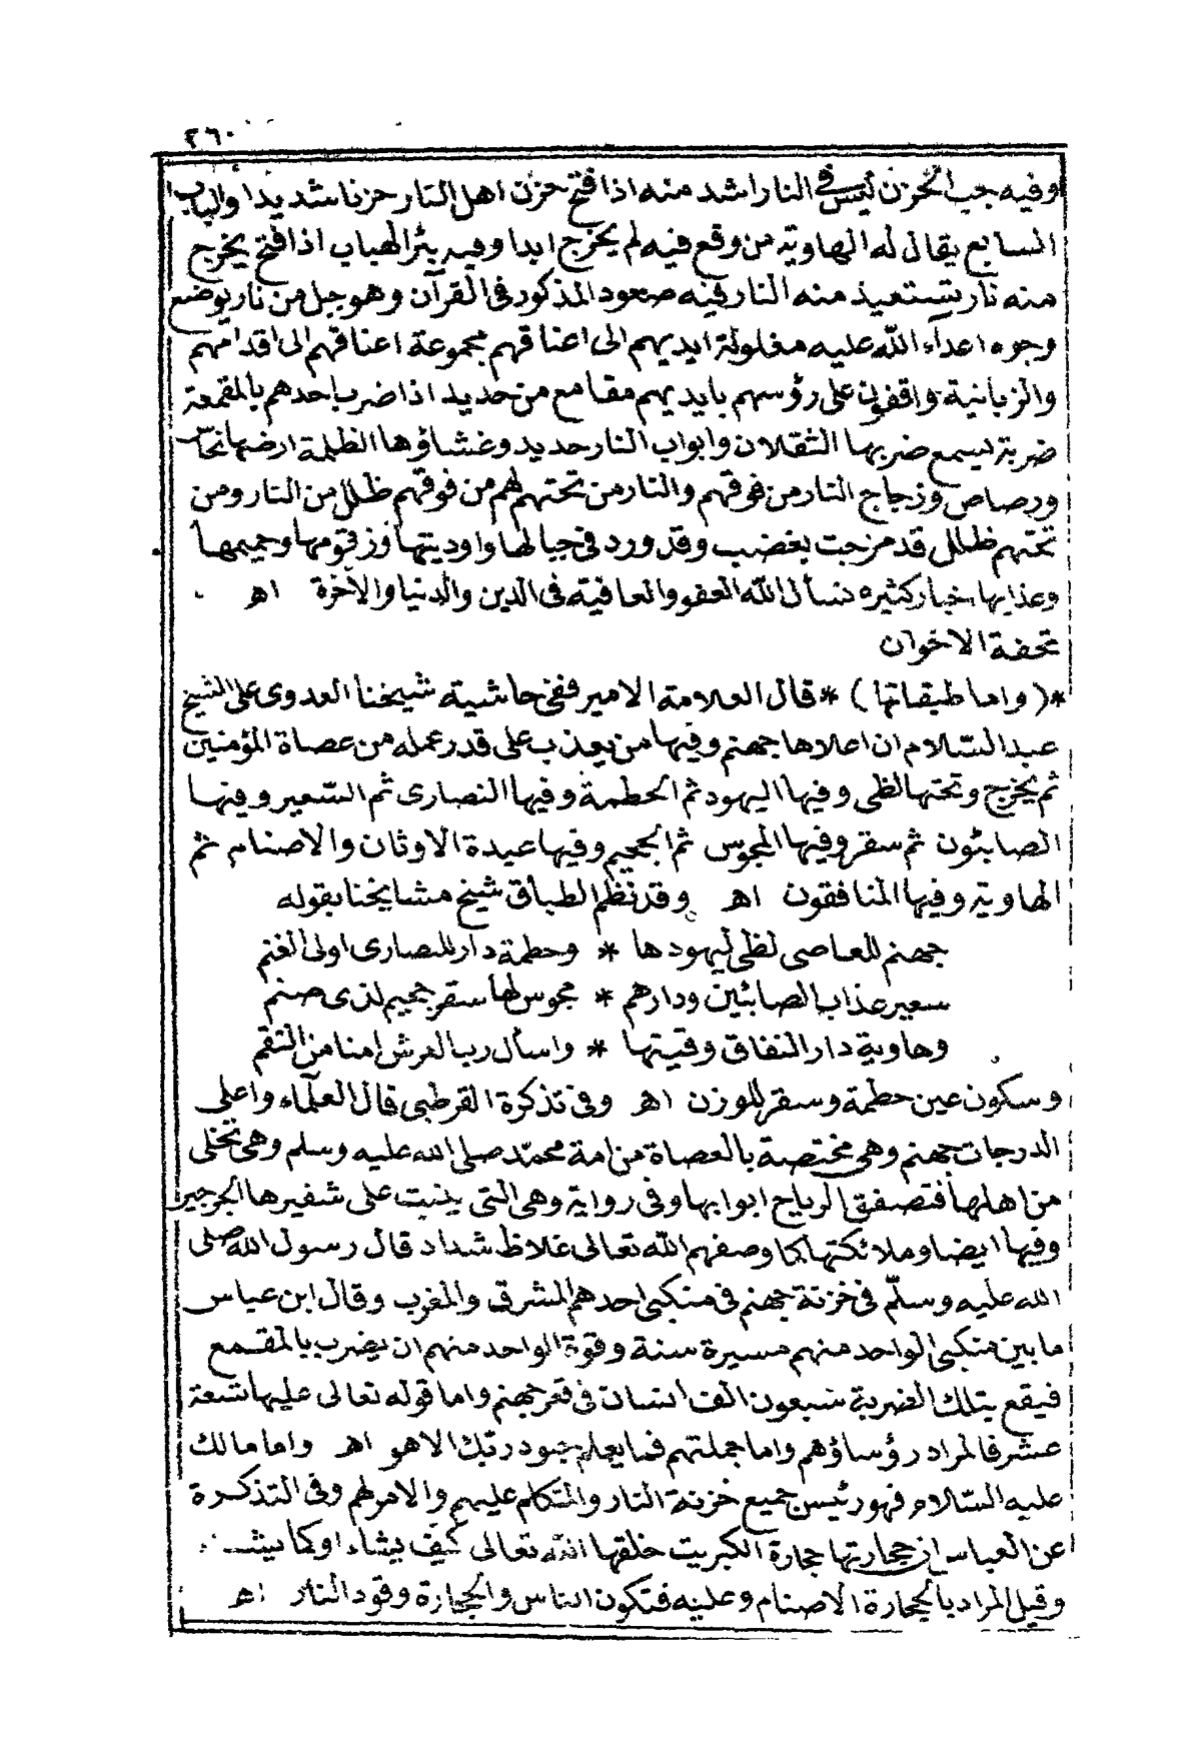 ٢٦٠
وفيه جب الحزن ليس في النار اشد منه اذا فتح حزن اهل النار حزنا شديدا والباب
السابع يقال له الهاوية من وقع فيه لم يخرج ابدا وفيه بئر الهباب اذا فتح يخرج
منه نار تستعيذ منه النار فيه صعود المذكور في القرآن وهو جبل من نار يوضع
وجوه اعداء الله عليه مغلولة ايديهم الى اعناقهم مجموعة اعناقهم الى اقدامهم
والزبانية واقفون على رؤسهم بايديهم مقامع من حديد اذا ضرب احدهم بالمقمعة
ضربة ليسمع ضربها الثقلان وابواب النار حديد وغشاؤها الظلمة ارضها نحاس
ورصاص وزجاج النار من فوقهم والنار من تحتهم لهم من فوقهم ظلل من النار ومن
تحتهم ظلل قد مزجت بغضب وقد ورد في جبالها واوديتها وزقومها وحميمها
وعذابها اخبار كثيره نسأل الله العفو والعافية في الدين والدنيا والآخرة اهـ
تحفة الاخوان
*(واما طبقاتها)* قال العلامة الامير ففي حاشية شيخنا العدوى على الشيخ
عبد السّلام ان اعلاها جهنم وفيها من يعذب على قدر عمله من عصاة المؤمنين
ثم يخرج وتحتها لظى وفيها اليهود ثم الحطمة وفيها النصارى ثم السّعير وفيها
الصابئون ثم سقر وفيها المجوس ثم الجحيم وفيها عبدة الاوثان والاصنام ثم
الهاوية وفيها المنافقون اهـ وقد نظم الطباق شيخ مشايخنا بقوله
جهنم للعاصى لظى ليهودها * وحطمة دار للنصارى اولى الغنم
سعير عذاب الصابئين ودارهم * مجوس لها سقر جحيم لذى صنم
وهاوية دار النفاق وقيتها * واسأل رب العرش امنا من النقم
وسكون عين حطمة وسقر للوزن اهـ وفى تذكرة القرطبى قال العلماء واعلى
الدرجات جهنم وهى مختصة بالعصاة من امة محمّد صلى الله عليه وسلم وهى تخلى
من اهلها فتصفق الرياح ابوابها وفى رواية وهى التى ينبت على شفيرها الجرجير
وفيها ايضا وملائكتها كما وصفهم الله تعالى غلاظ شداد قال رسول الله صلى
الله عليه وسلّم فى خزنة جهنم فى منكبى احدهم المشرق والمغرب وقال ابن عباس
ما بين منكبى الواحد منهم مسيرة سنة وقوة الواحد منهم ان يضرب بالمقمع
فيقع بتلك الضربة سبعون الف انسان فى قعر جهنم واما قوله تعالى عليها تسعة
عشر فالمراد رؤساؤهم واما جملتهم فما يعلم جنود ربك الا هو اهـ واما مالك
عليه السّلام فهو رئيس جميع خزنة النار والمتكلم عليهم والامر لهم وفى التذكرة
عن العباس ان حجارتها حجارة الكبريت خلقها الله تعالى كيف يشاء او كما يشاء
وقيل المراد بالحجارة الاصنام وعليه فتكون الناس والحجارة وقود النار اهـ